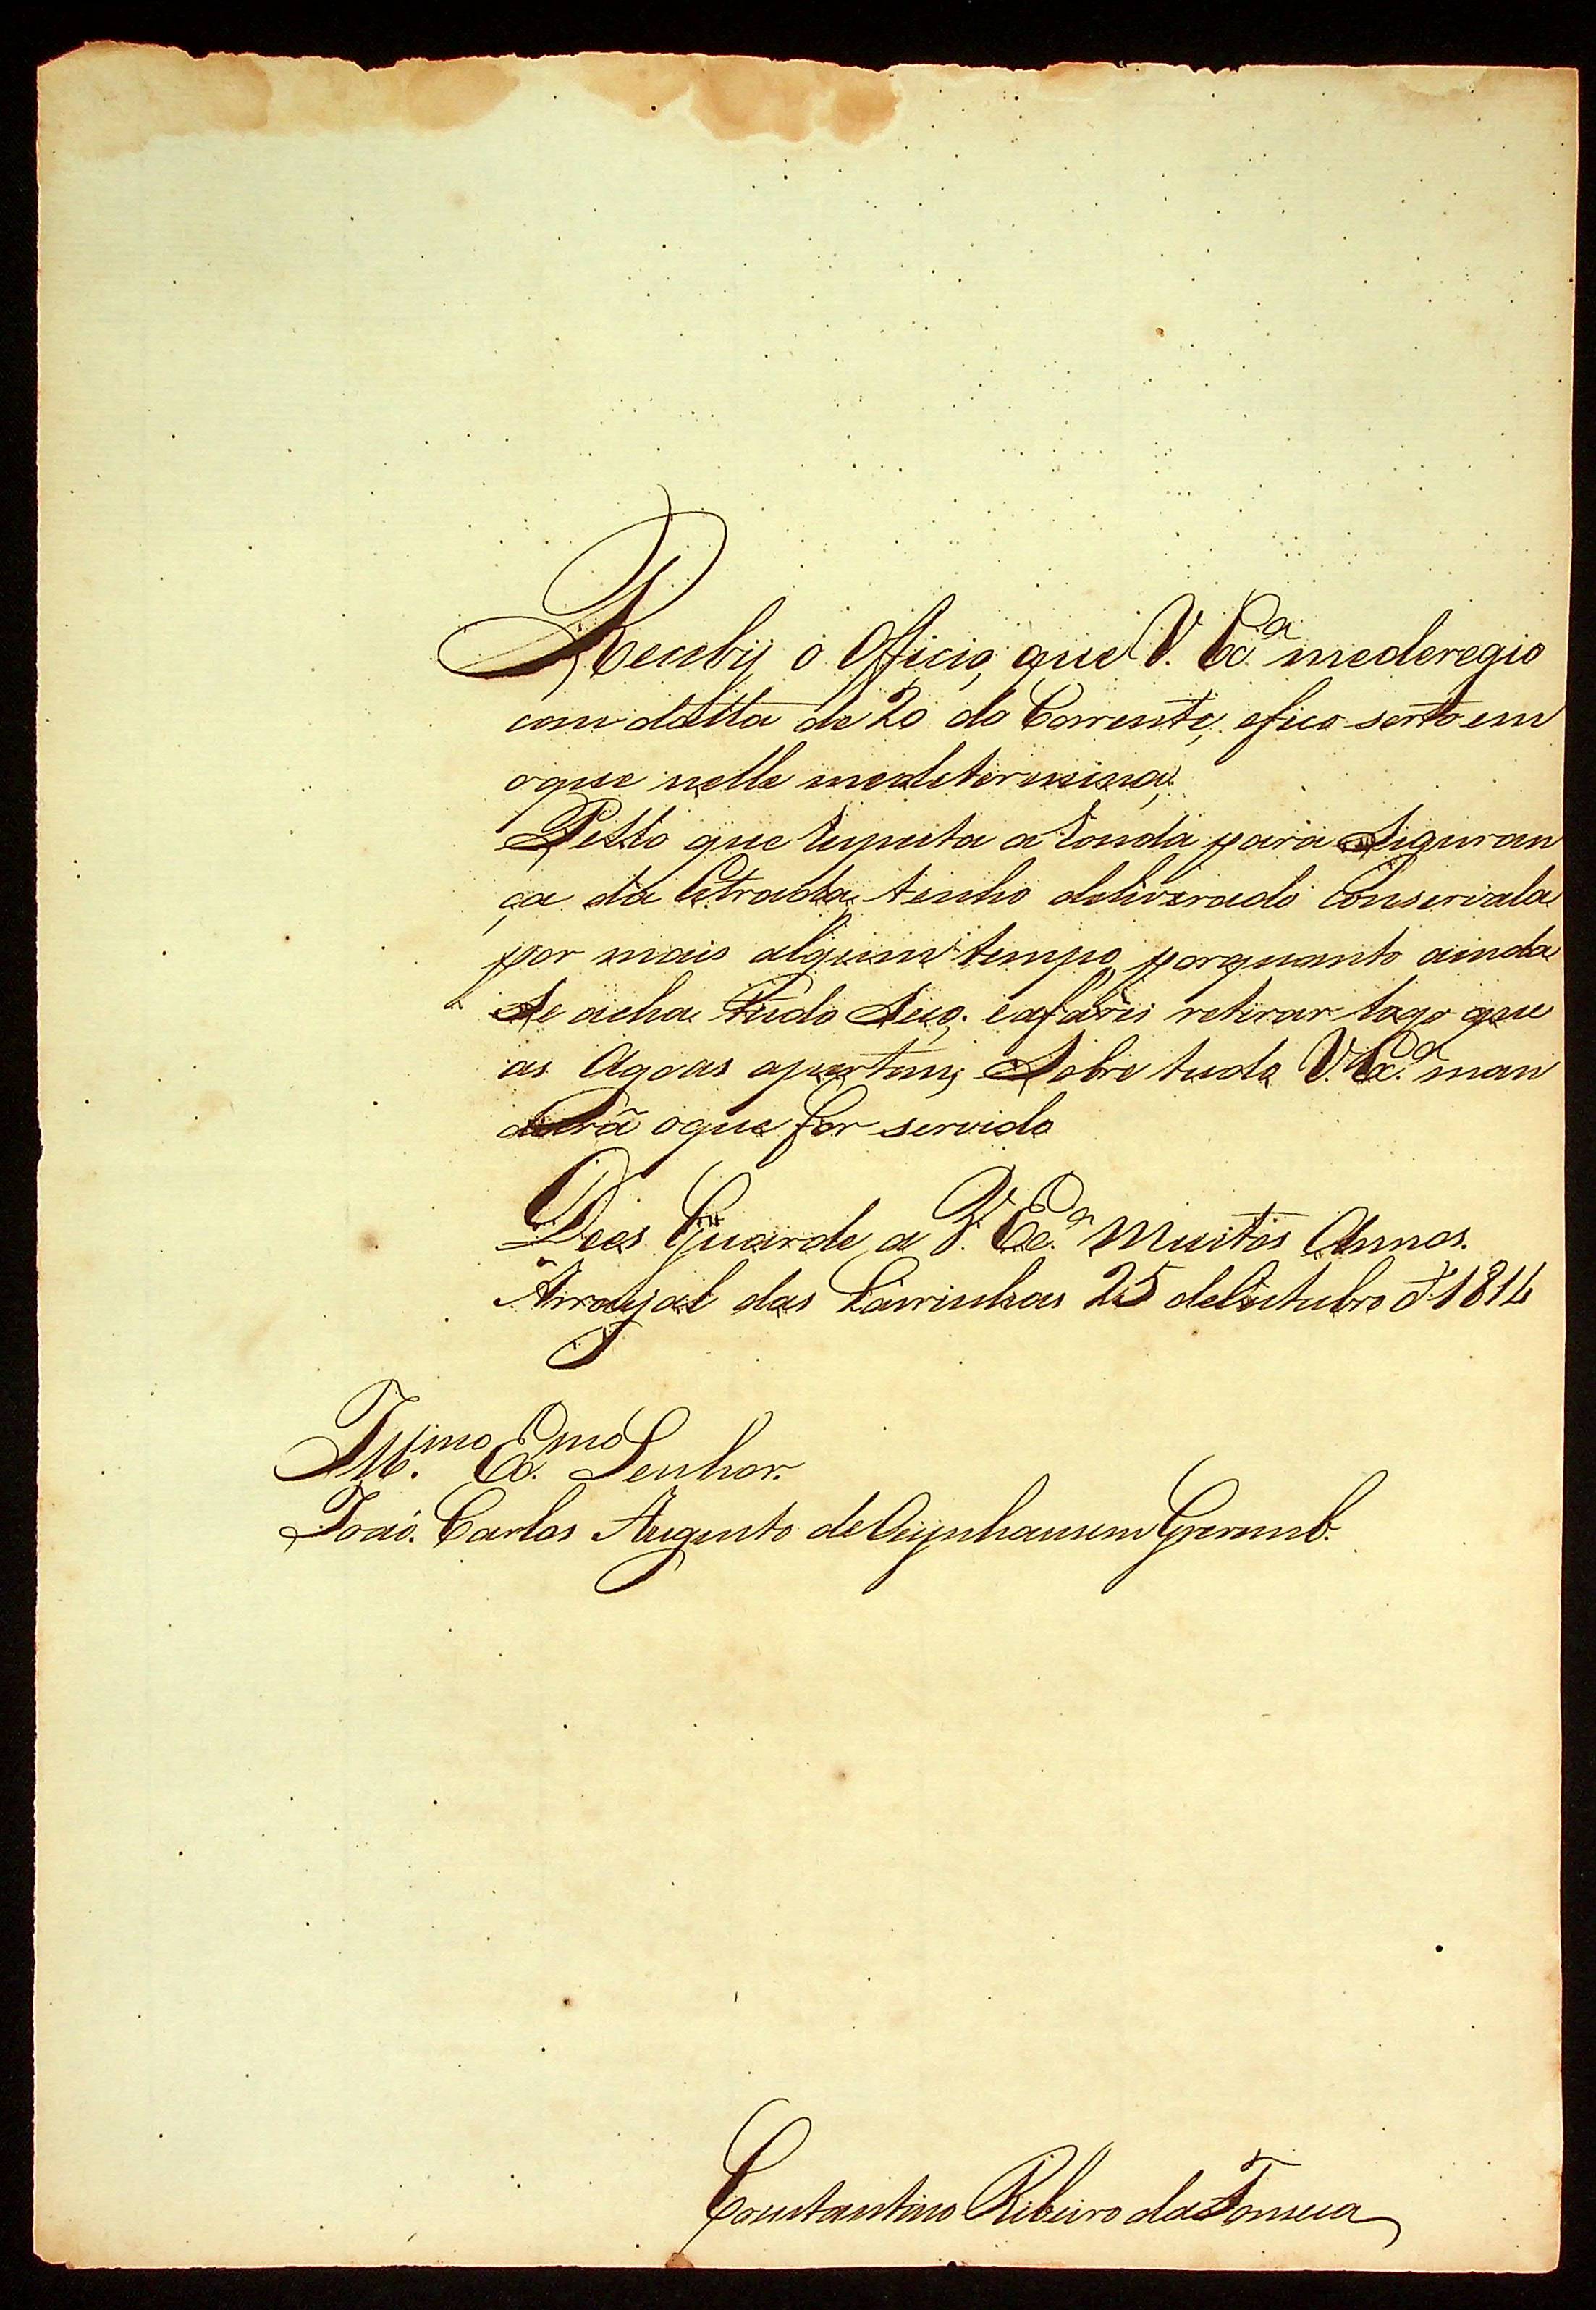 Receby o Officio, que V. Exª. mederegio
com datta de 20 do Corrente, efico serto em
oque nelle medetermina;
Pello que respeita a Ronda para Siguran
ça da Estrada, tenho deliverado Conservala
por mais algum tempo, porquanto ainda
Se acha tudo Seco. eafarei retirar logo que
as Agoas apertem; Sobre tudo V. Exª. man
dará oque for servido
Deos Guarde a V. Exª. Muitos Annos.
Arrayal das Lavrinhas 25 deOutubro d'1814
Illmo. Exmo. Senhor.
João. Carlos Augusto deOeynhausem Gravemb.
Constantino Ribeiro daFonseca